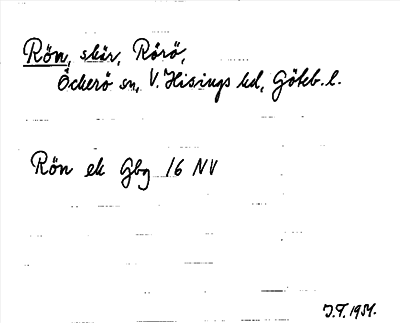 Rön, skär, Rörö,
Öckerö sn, V. Hisings hd, Göteb. l.
Rön ek Gbg 16 NV
J.F. 1951.